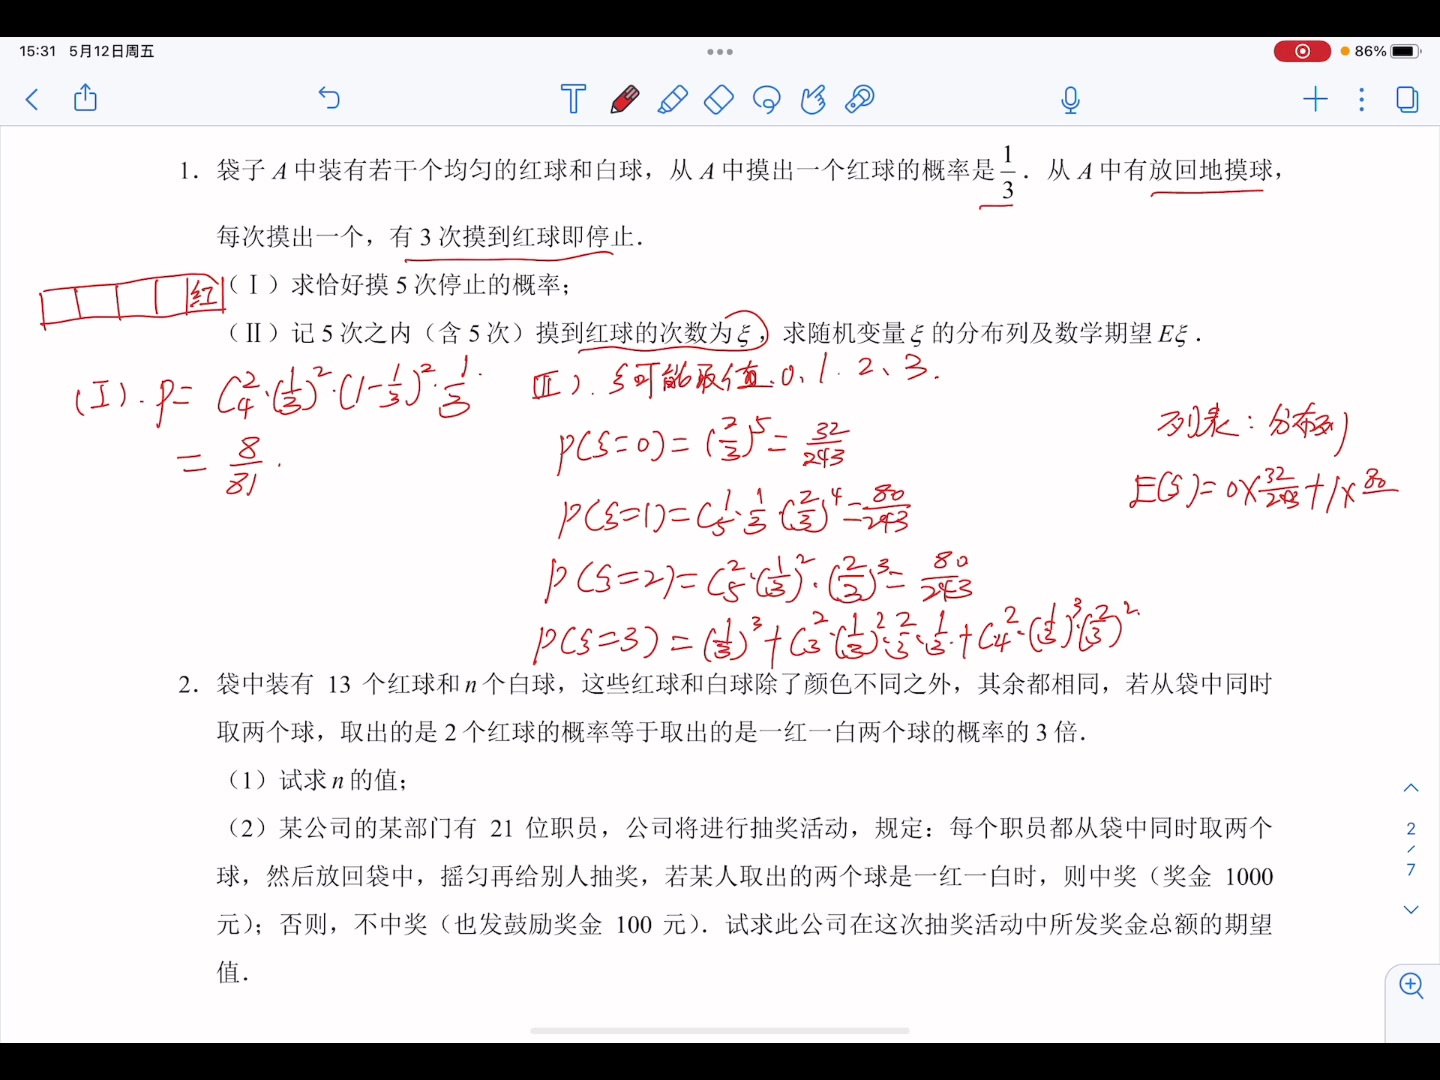 15:31 5月12日周五
86%
1. 袋子 A 中装有若干个均匀的红球和白球，从 A 中摸出一个红球的概率是 1/3．从 A 中有放回地摸球，
每次摸出一个，有 3 次摸到红球即停止．
（Ⅰ）求恰好摸 5 次停止的概率；
红
（Ⅱ）记 5 次之内（含 5 次）摸到红球的次数为 ξ，求随机变量 ξ 的分布列及数学期望 Eξ．
(Ⅰ). P = C₄²·(1/3)²·(1-1/3)²·1/3
= 8/81.
(Ⅱ). ξ可能取值.0、1、2、3.
P(ξ=0)=(2/3)⁵=32/243
P(ξ=1)=C₅¹·1/3·(2/3)⁴=80/243
P(ξ=2)=C₅²·(1/3)²·(2/3)³=80/243
P(ξ=3)=(1/3)³+C₃²·(1/3)²·2/3·1/3+C₄²·(1/3)³·(2/3)²
列表：分布列
E(ξ)=0×32/243+1×80
2. 袋中装有 13 个红球和 n 个白球，这些红球和白球除了颜色不同之外，其余都相同，若从袋中同时
取两个球，取出的是 2 个红球的概率等于取出的是一红一白两个球的概率的 3 倍．
（1）试求 n 的值；
（2）某公司的某部门有 21 位职员，公司将进行抽奖活动，规定：每个职员都从袋中同时取两个
球，然后放回袋中，摇匀再给别人抽奖，若某人取出的两个球是一红一白时，则中奖（奖金 1000
元）；否则，不中奖（也发鼓励奖金 100 元）．试求此公司在这次抽奖活动中所发奖金总额的期望
值．
2/7